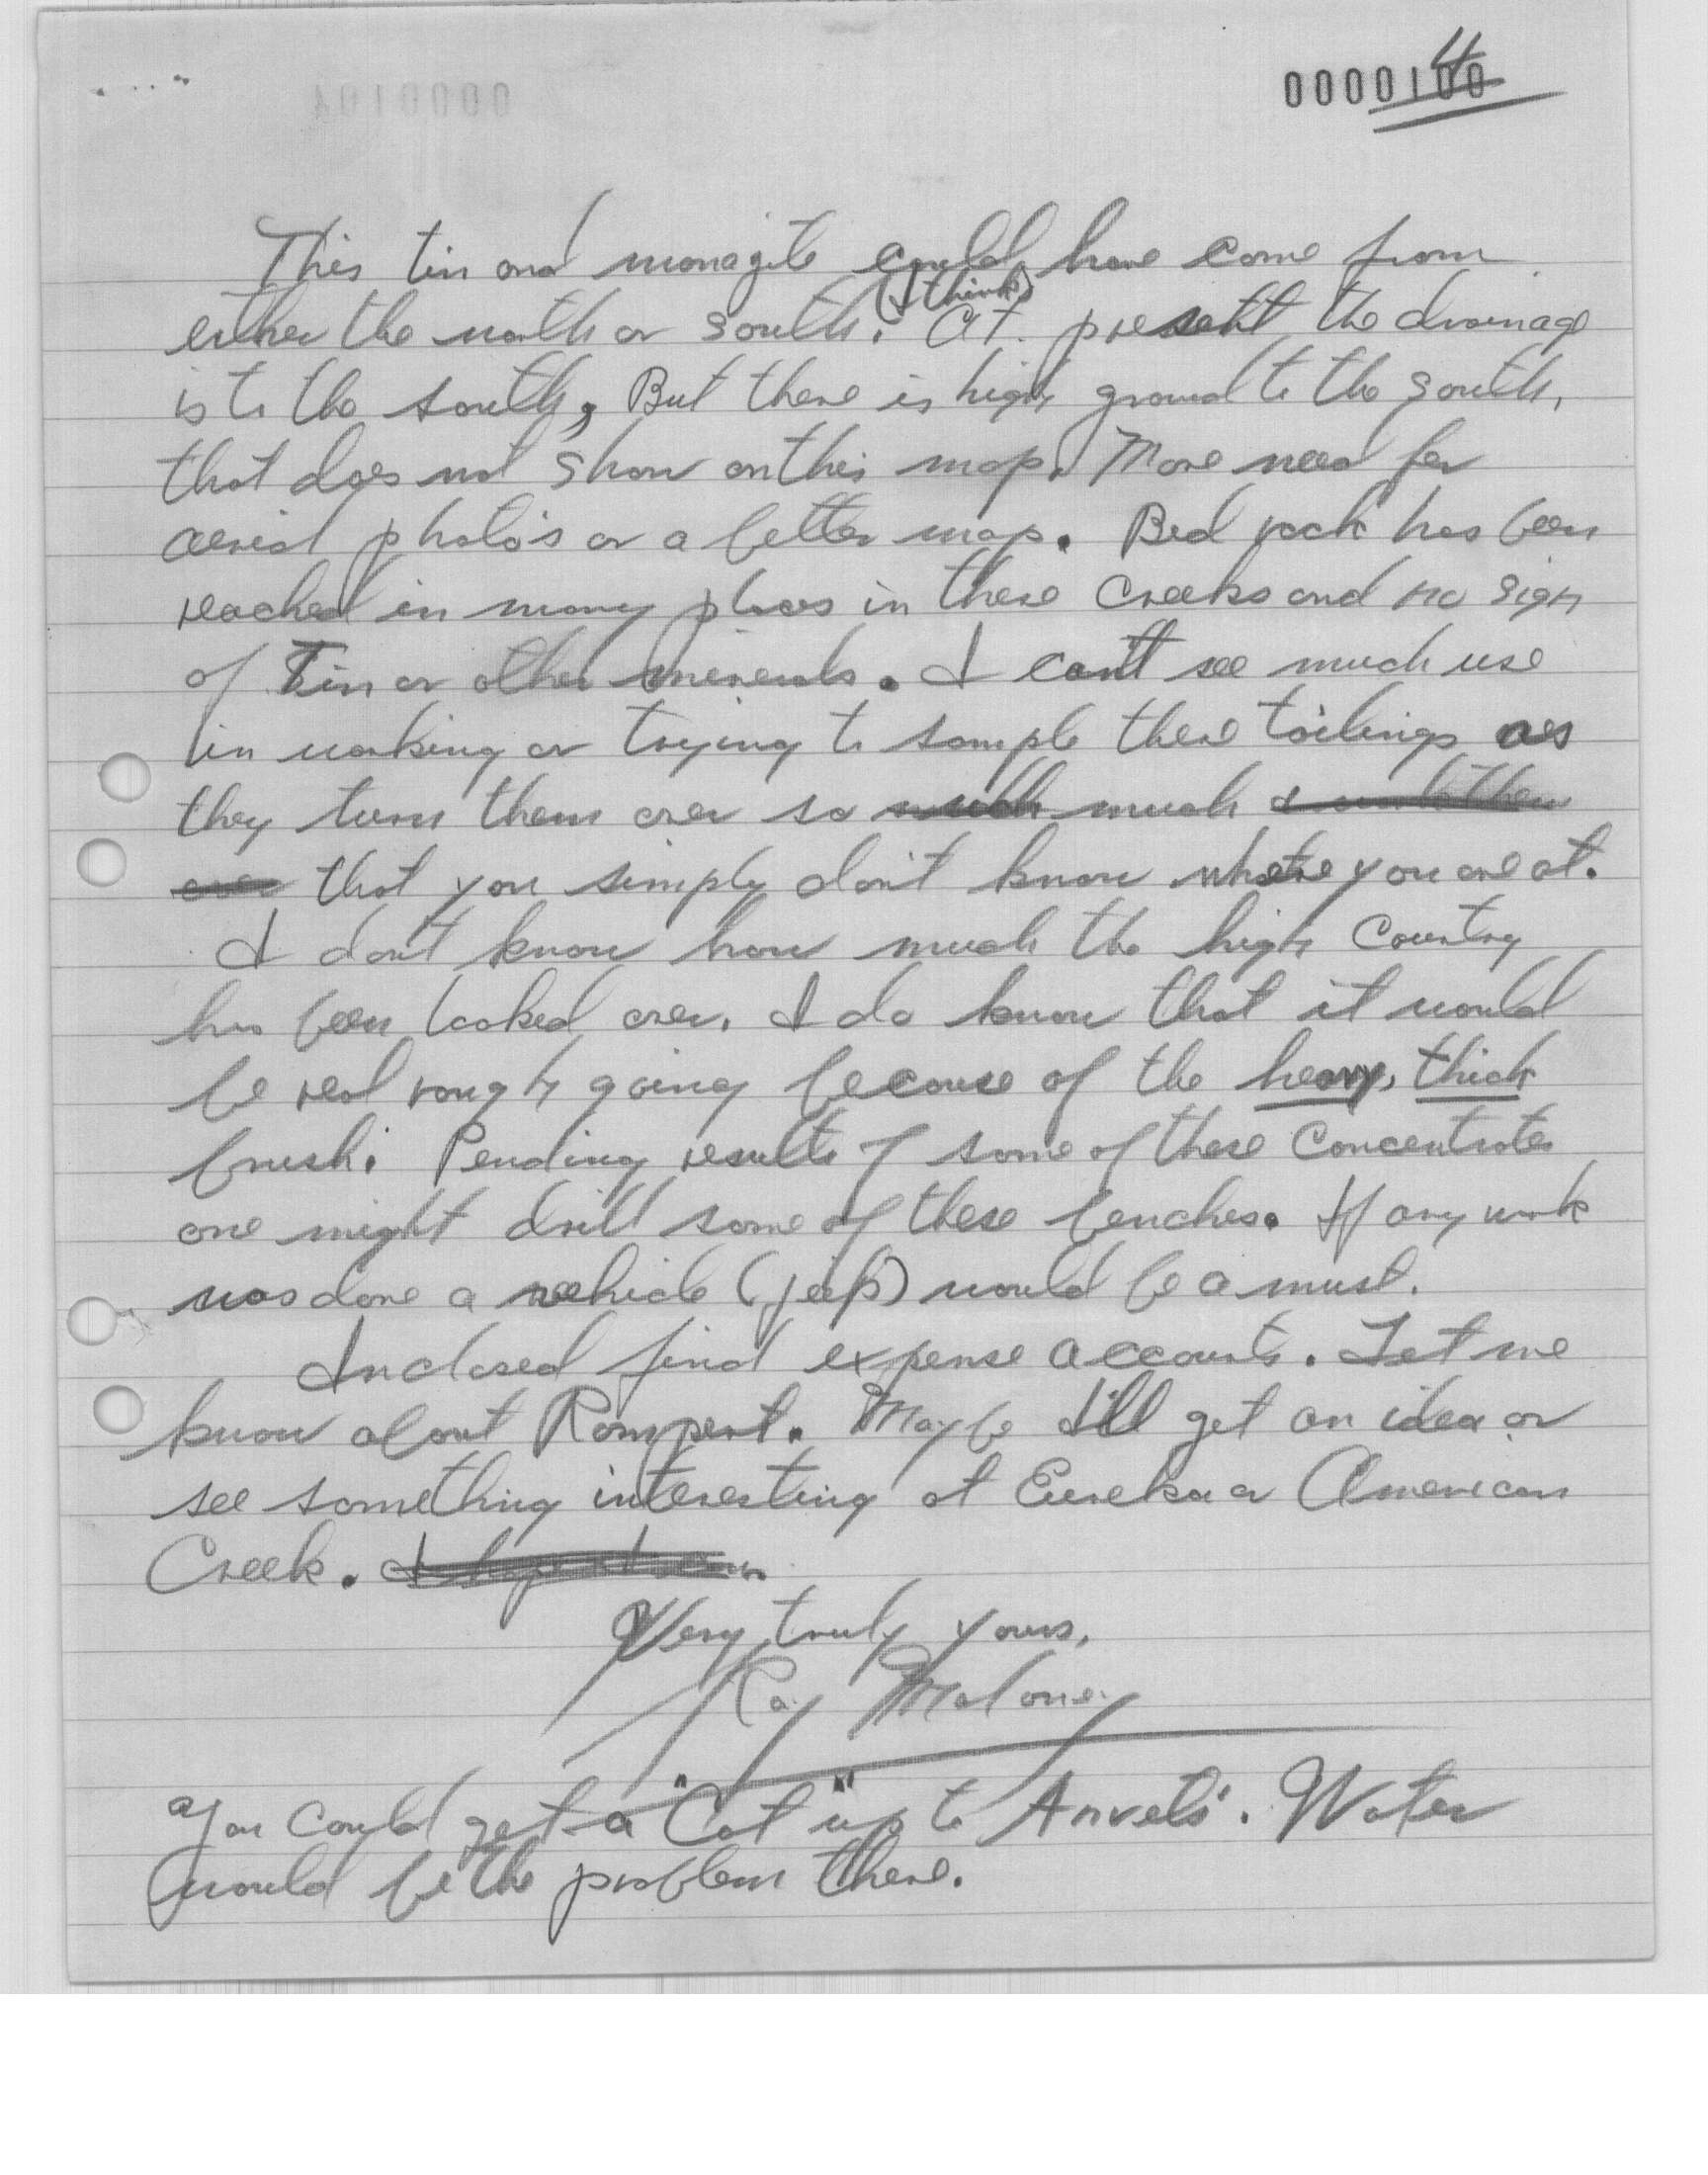 0000100
4
This tin and monazite could have come from
(I think)
either the north or south. At present the drainage
is to the south, But there is high ground to the south,
that does not show on this map. More need for
aerial photo's or a better map. Bed rock has been
reached in many places in these Creeks and no sign
of Tin or other minerals. I can't see much use
in working or trying to sample these tailings as
they turn them over so much much & work them
over that you simply don't know where you are at.
I don't know how much the high Country
has been looked over. I do know that it would
be real rough going because of the heavy, thick
brush. Pending results of some of these Concentrates
one might drill some of these benches. If any work
was done a vehicle (jeep) would be a must.
Inclosed find expense accounts. Let me
know about Rampart. Maybe I'll get an idea or
see something interesting at Eureka or American
Creek.
Very truly yours,
Ray Maloney
You could get a "Cat" up to Anvels'. Water
would be the problem there.